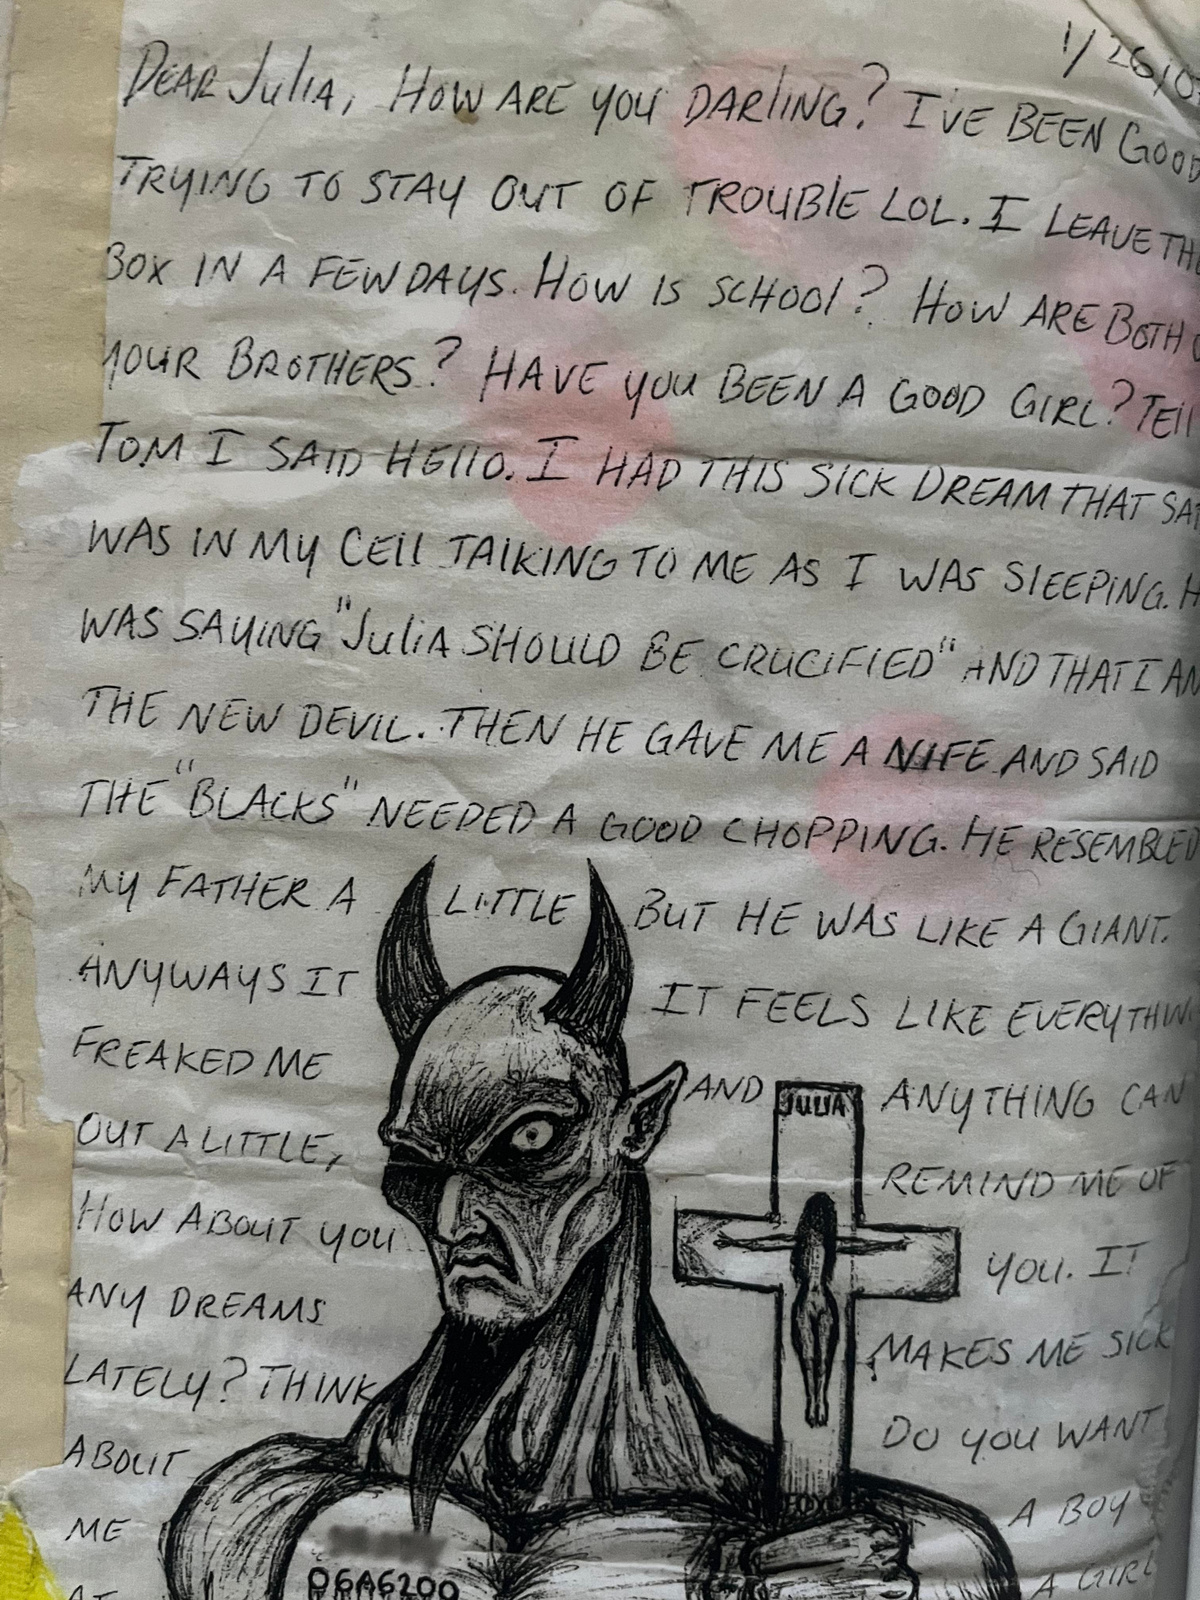 1/26/0
DEAR JULIA, HOW ARE YOU DARLING? I'VE BEEN GOOD
TRYING TO STAY OUT OF TROUBLE LOL. I LEAVE THE
BOX IN A FEW DAYS. HOW IS SCHOOL? HOW ARE BOTH
YOUR BROTHERS? HAVE YOU BEEN A GOOD GIRL? TELL
TOM I SAID HELLO. I HAD THIS SICK DREAM THAT SAT
WAS IN MY CELL TALKING TO ME AS I WAS SLEEPING. H
WAS SAYING "JULIA SHOULD BE CRUCIFIED" AND THAT I AM
THE NEW DEVIL. THEN HE GAVE ME A NIFE AND SAID
THE "BLACKS" NEEDED A GOOD CHOPPING. HE RESEMBLED
MY FATHER A LITTLE BUT HE WAS LIKE A GIANT.
ANYWAYS IT
FREAKED ME
OUT A LITTLE,
HOW ABOUT YOU
ANY DREAMS
LATELY? THINK
ABOUT
ME
AT
IT FEELS LIKE EVERYTHING
AND ANYTHING CAN
REMIND ME OF
YOU. IT
MAKES ME SICK
DO YOU WANT
A BOY
A GIRL
JULIA
06A6200